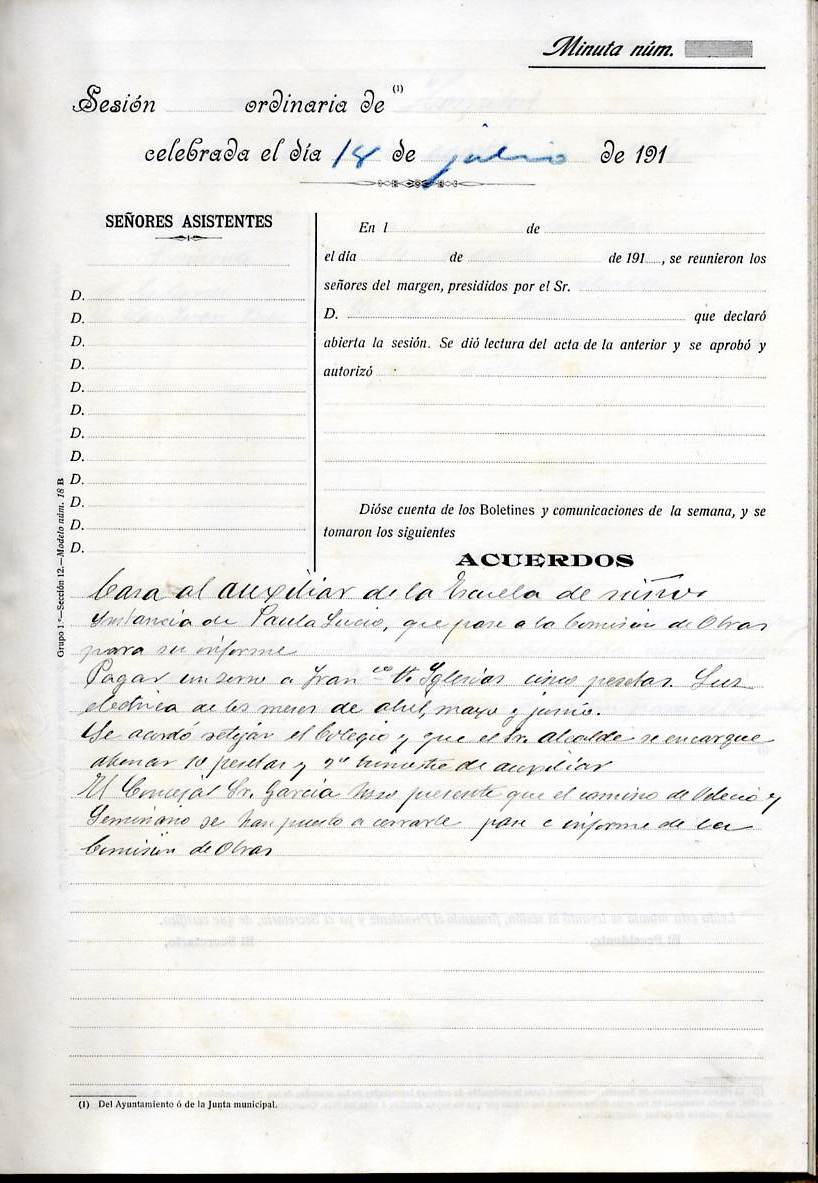 Minuta núm.
Sesión ordinaria de (1)
celebrada el día 18 de julio de 191
SEÑORES ASISTENTES
En l de
el día de de 191 , se reunieron los
señores del margen, presididos por el Sr.
D. que declaró
abierta la sesión. Se dió lectura del acta de la anterior y se aprobó y
autorizó
D.
D.
D.
D.
D.
D.
D.
D.
D.
D.
D.
D.
Dióse cuenta de los Boletines y comunicaciones de la semana, y se
tomaron los siguientes
ACUERDOS
Casa al auxiliar de la Escuela de niños
Instancia de Paula Lucio, que pase a la Comisión de Obras
para su informe
Pagar un a Fran co V. Iglesias cinco pesetas. Luz
electrica de los meses de abril, mayo y junio.
Se acordó retejar el Colegio y que el Sr. Alcalde se encargue
abonar 10 pesetas y 2º trimestre de auxiliar
El Concejal Sr. García hizo presente que el camino de y
se han puesto a cerrarle pase a informe de la
Comisión de Obras
Grupo 1.º—Sección 12.—Modelo núm. 18 B
(1) Del Ayuntamiento ó de la Junta municipal.